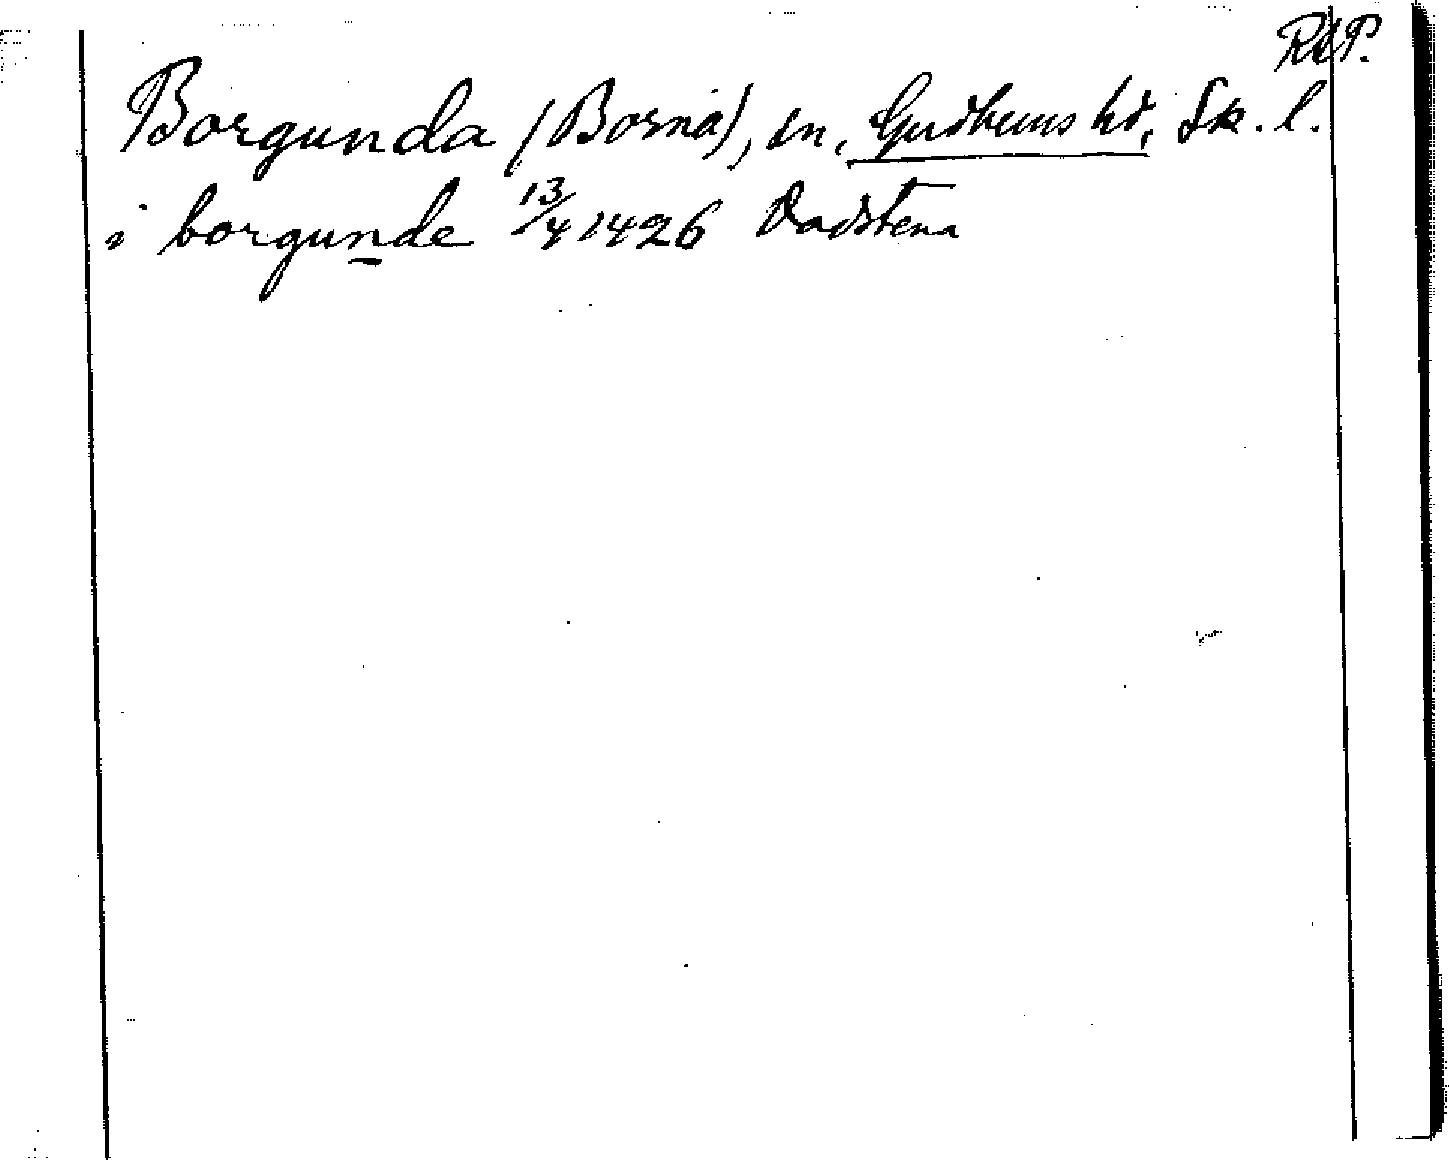 RAP.
Borgunda (Borna), sn, Gudhems hd, Sk. l.
i borgunde 13/4 1426 Vadstena